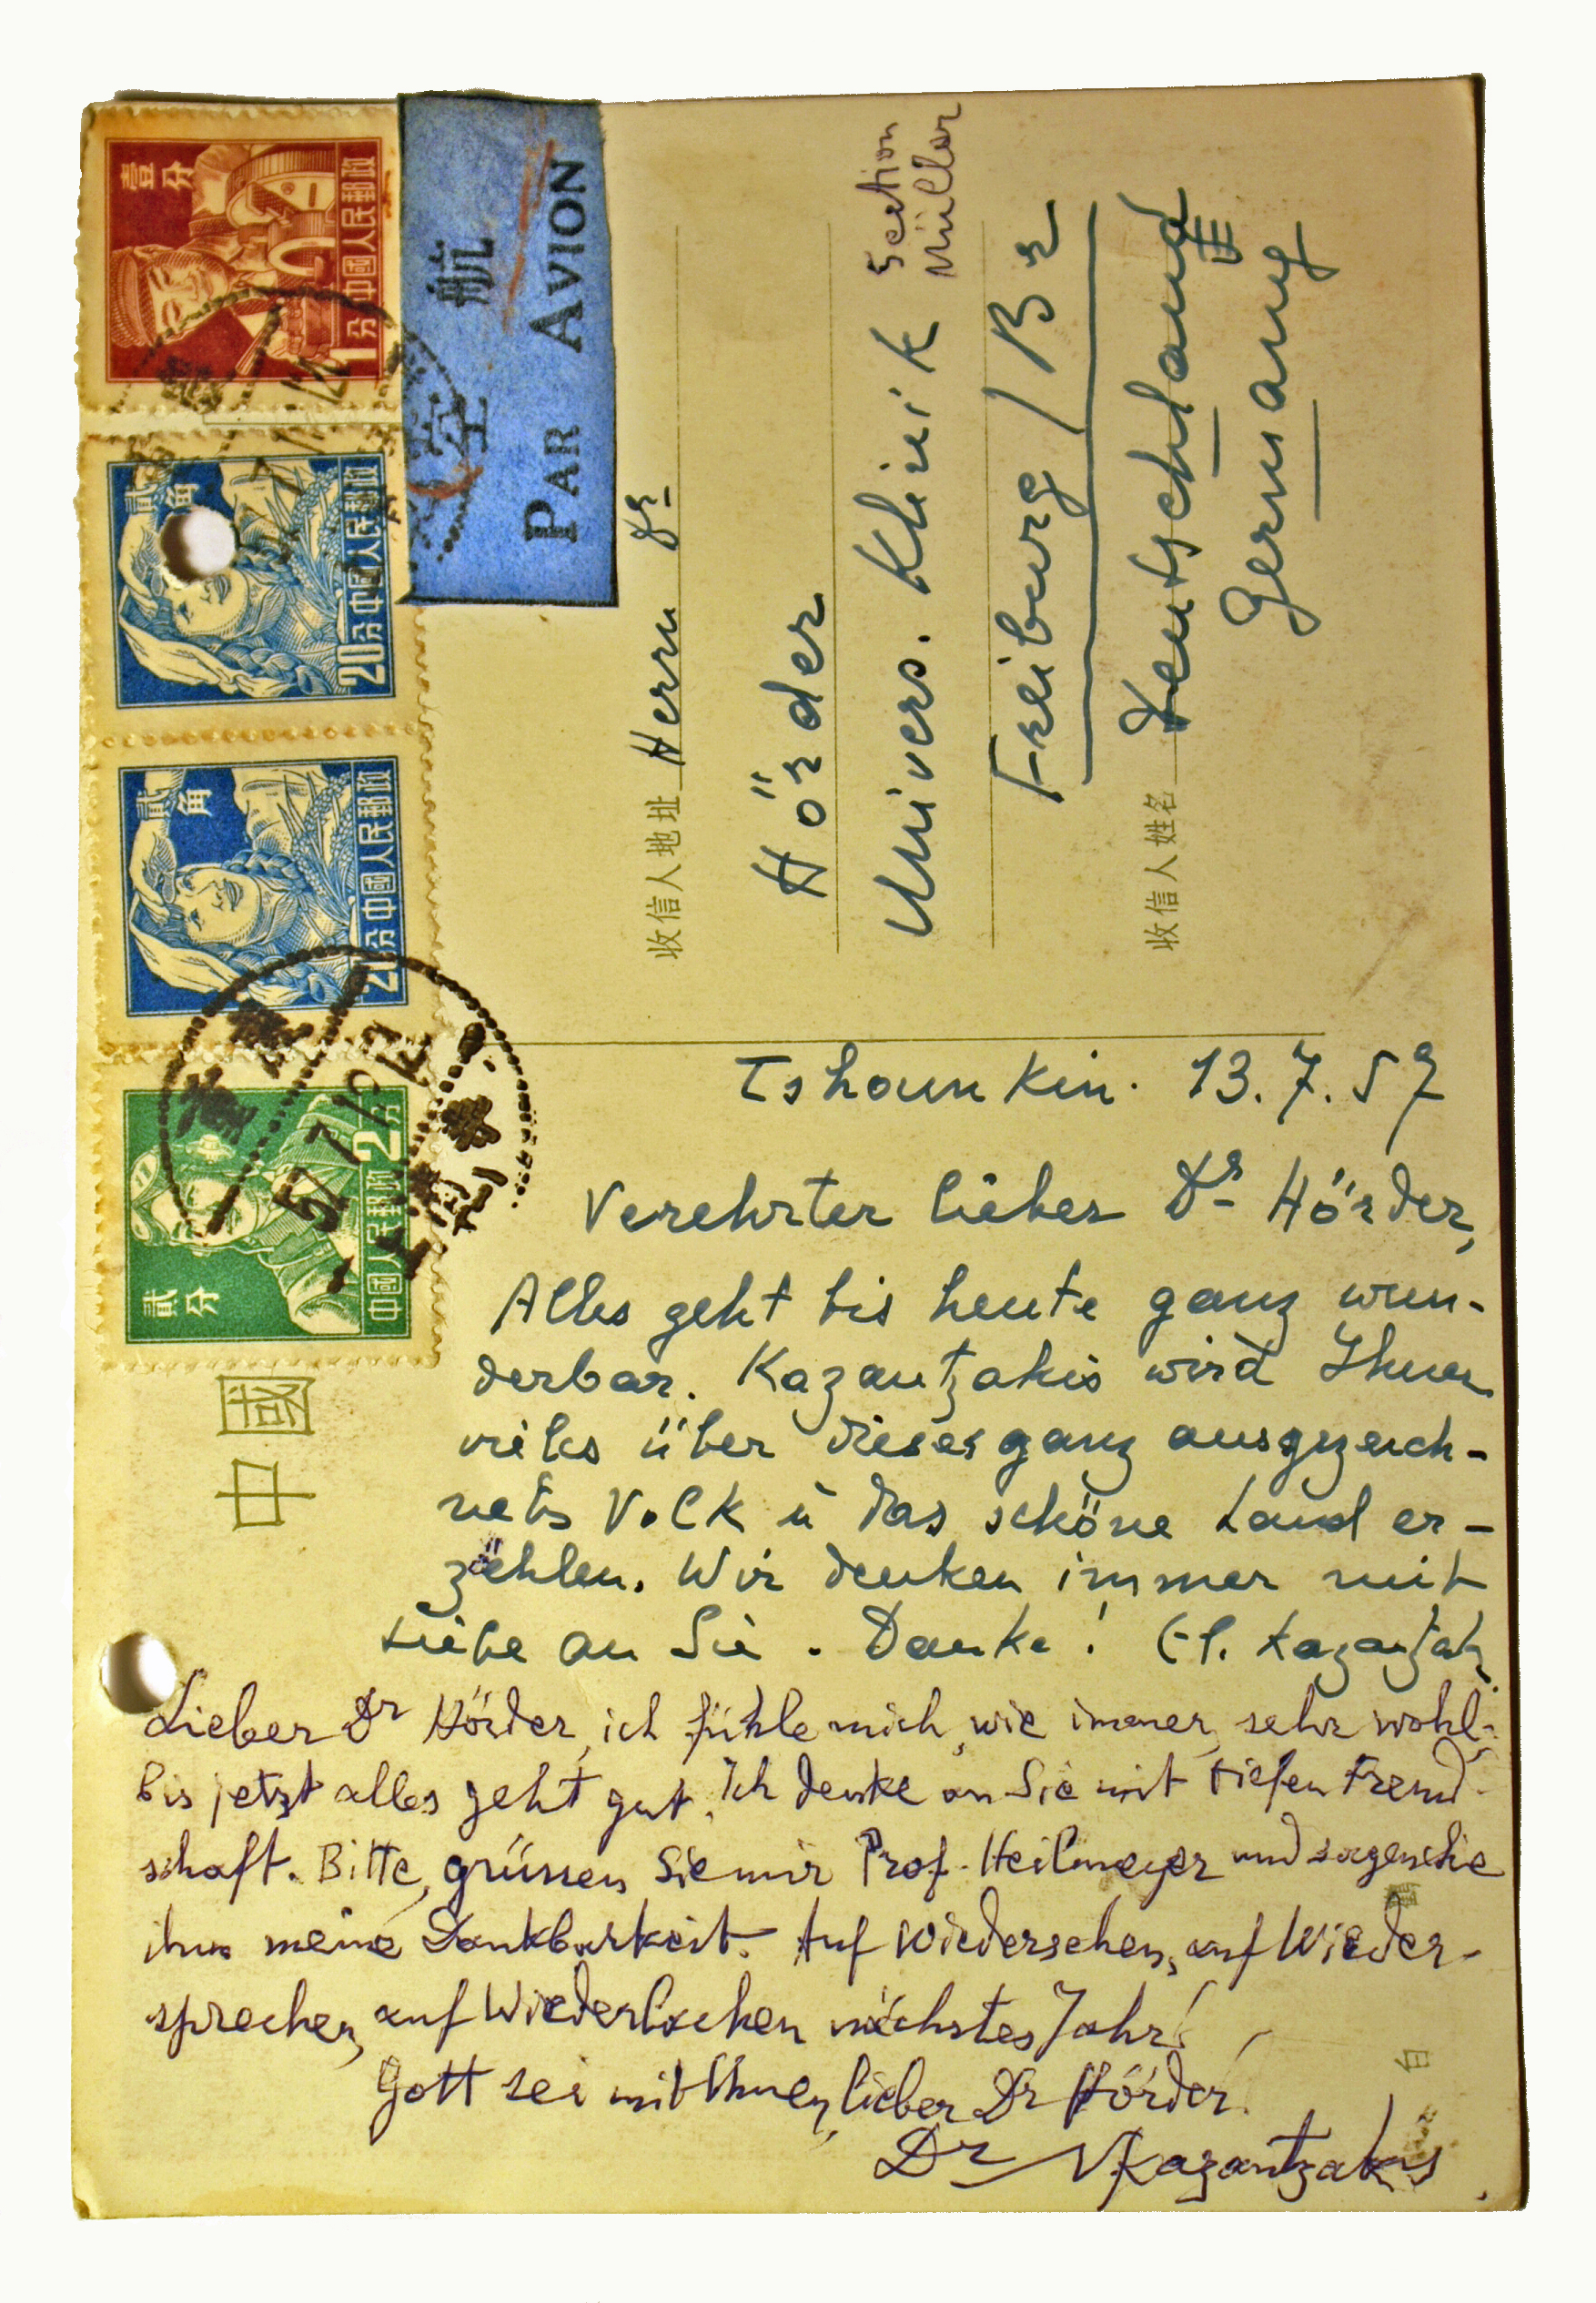 壹分
1分 中國人民郵政
貳角
20分 中國人民郵政
貳角
20分 中國人民郵政
貳分
中國人民郵政 2分
57.7.13
航空
PAR AVION
中國
收信人地址 Herrn Dr
Hörder
Univers. Klinik
Section
Müller
Freiburg / Br
收信人姓名 Deutschland
Germany
Tshounkin. 13.7.57
Verehrter lieber Dr Hörder,
Alles geht bis heute ganz wun-
derbar. Kazantzakis wird Ihnen
vieles über dieses ganz ausgezeich-
netes Volk u das schöne Land er-
zählen. Wir denken immer mit
Liebe an Sie. Danke! El. Kazantzaki
Lieber Dr Hörder, ich fühle mich, wie immer, sehr wohl.
Bis jetzt alles geht gut. Ich denke an Sie mit tiefen Freund-
schaft. Bitte, grüssen Sie mir Prof. Heilmeyer und sagen Sie
ihm meine Dankbarkeit. Auf Wiedersehen, auf Wieder-
sprechen, auf Wiederlachen nächstes Jahr!
Gott sei mit Ihnen, lieber Dr Hörder!
Dr NKazantzakis